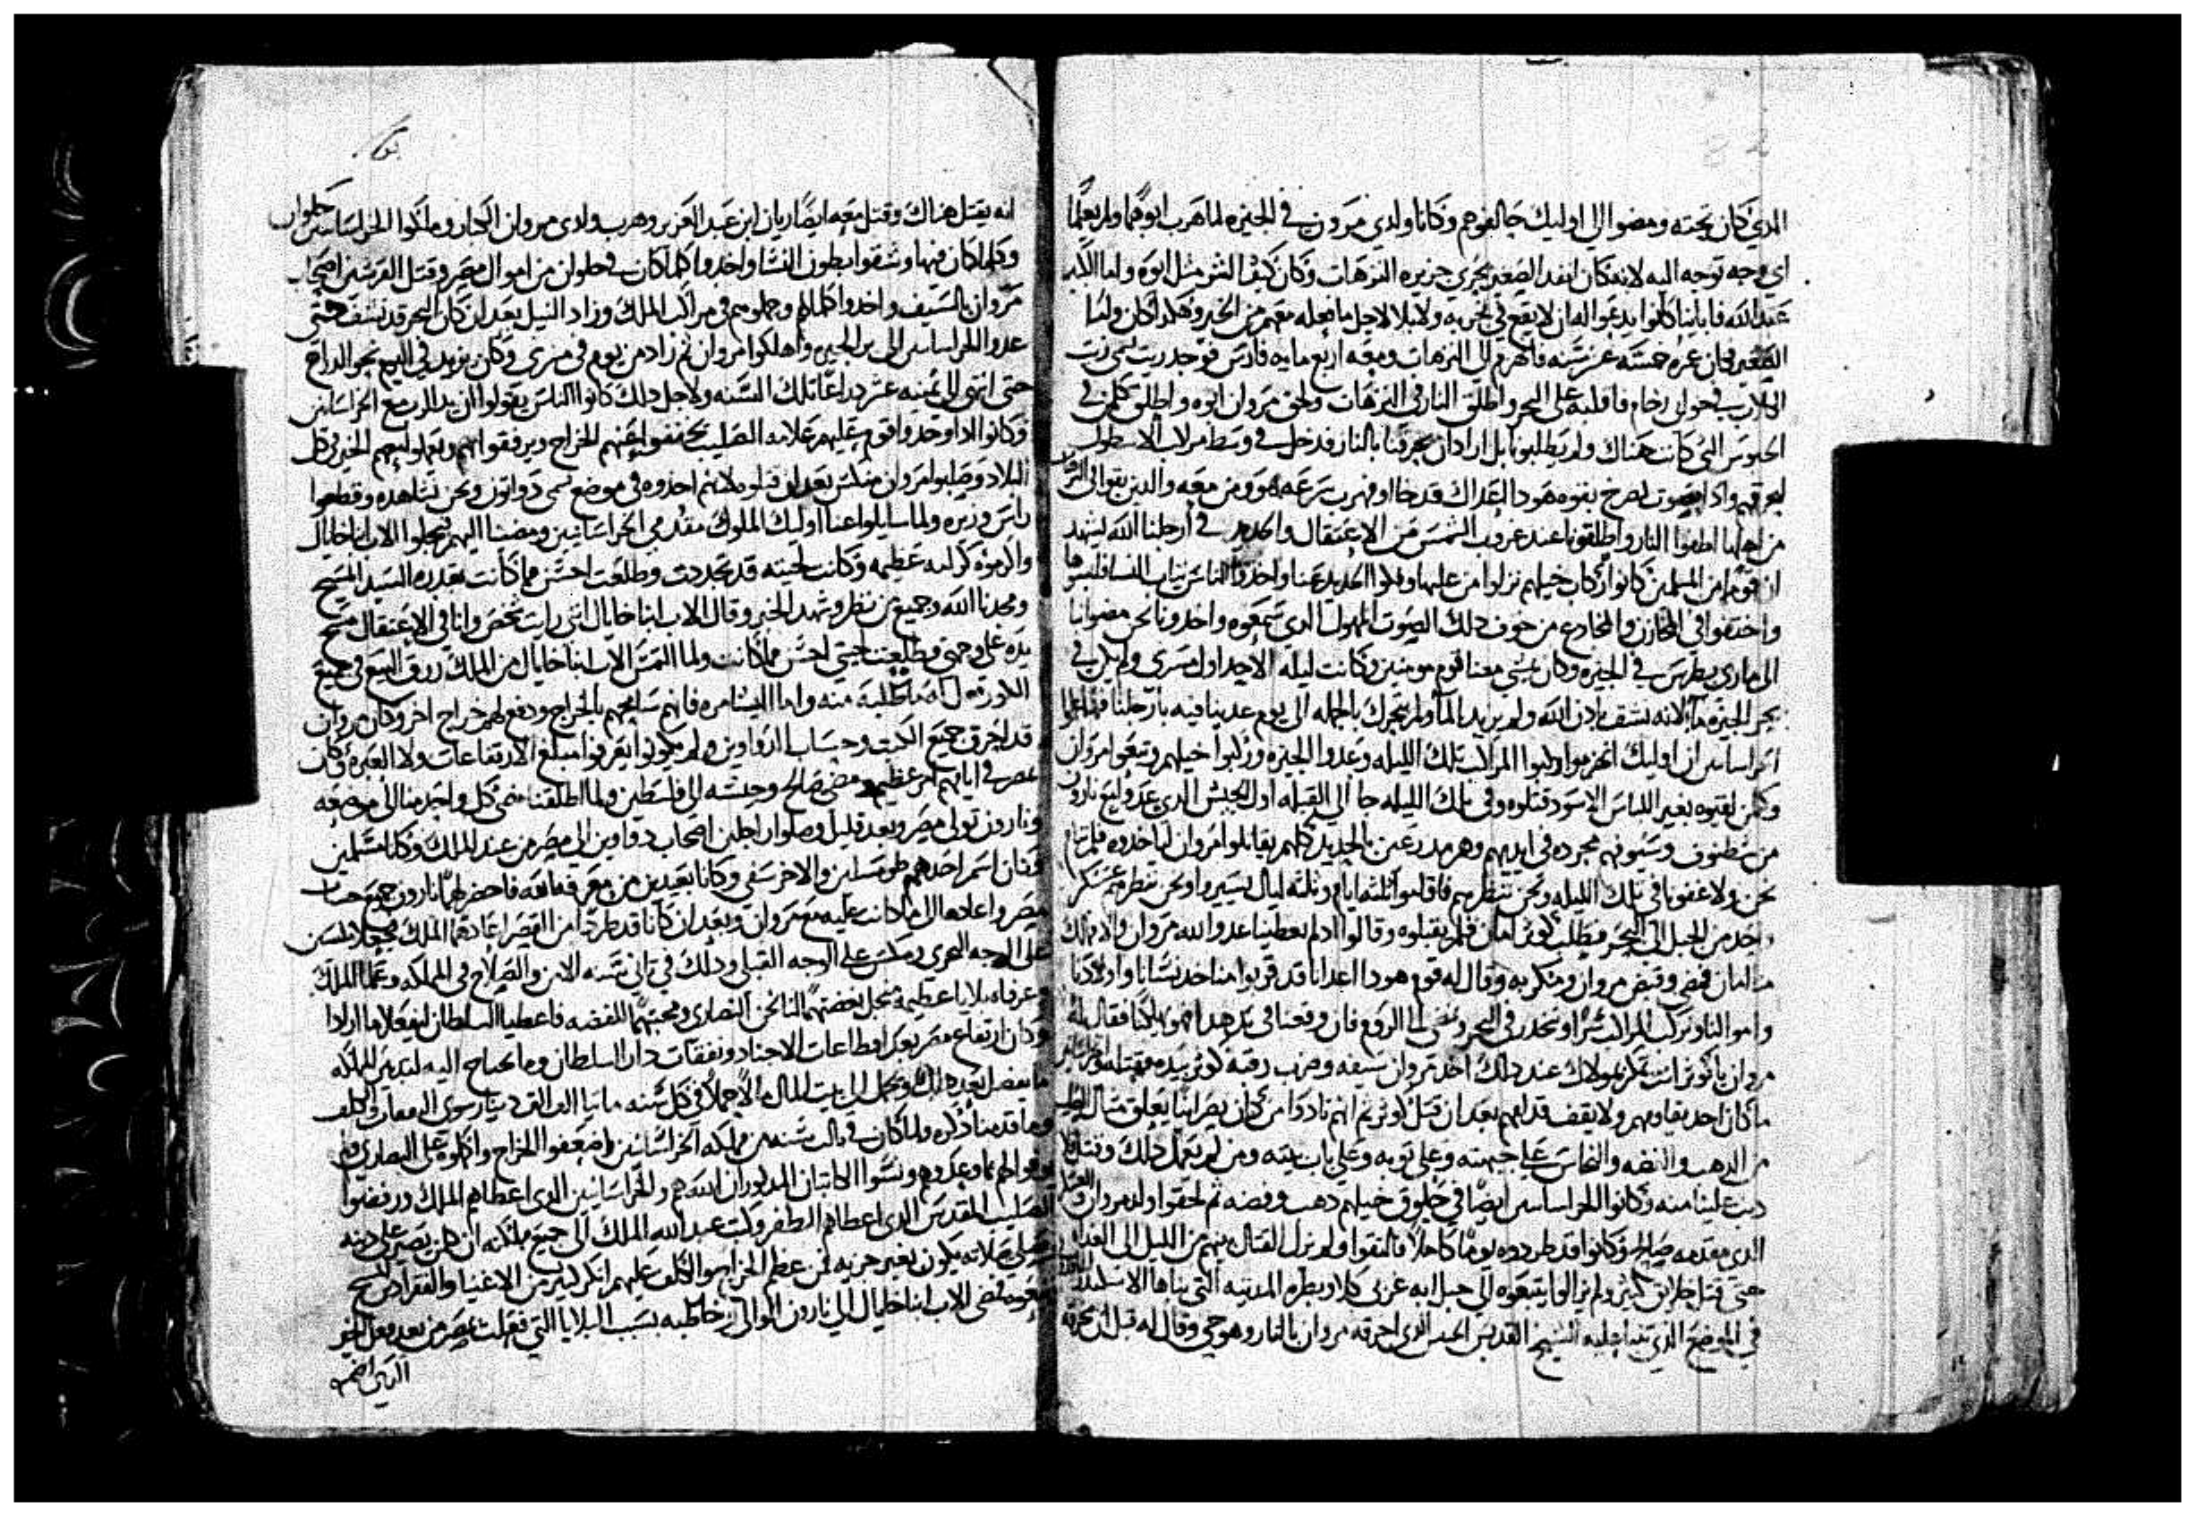 الذي كان تحته ومضوا الى اوليك حالفوهم وكانا ولدي مروان في الجيزه لما هرب ابوهما ولم يعلما
اي وجه توجه اليه لانه كان انفد الصغير يحرق جزيره النزهات وكان كتير الشر مثل ابوه واما الكبير
عبد الله فاباينا كانوا يدعوا له ان لا يقع في تجربه ولا بلا لاجل ما فعله معهم من الخير وهكدا كان واما
الصغير فكان عمره خمسه عشر سنه فانهزم الى النزهات ومعه اربع مايه فارس فوجد زيت
في حواي رخام فاقلبه على البحر واطلق النار في النزهات ولحق مروان ابوه واطلق كلمن في
الحبوس التي كانت هناك ولم يطلبونا بل اراد ان يحرقنا بالنار فدخل في وسط مراكب الاسطول
ليحرقهم وادا بصوت يصرخ بقوه هودا اعداك قد جاوا فهرب بسرعه هو ومن معه والدين بقوا
من اهلنا اطفوا النار واطلقونا عند غروب الشمس من الاعتقال والحديد في ارجلنا الله يشهد
ان قوما من المسلمين كانوا ركاب خيلهم نزلوا من عليها وفكوا الحديد عنا واخدوا الناس تياب النسا فلبسوها
واختفوا في المخازن والمخادع من خوف دلك الصوت المهول الدي سمعوه واخدونا نحن مضوا بنا
الى ماري بطرس في الجيزه وكان يمشي معنا قوم مومنين وكانت ليله الاحد اول مسري ولم يكن في
بحر الجيزه ما لانه نشف بادن الله ولم يزيد الما ولم يتحرك بالجمله الى يوم عدينا فيه بارجلنا فلما علموا
الخراسانيين ان اوليك انهزموا ركبوا المراكب تلك الليله وعدوا الجيزه وركبوا خيلهم وتبعوا مروان
وكلمن لقيوه بغير اللباس الاسود قتلوه وفي تلك الليله جا الى القبله اول الجيش الدي
من شطنوف وسيوفهم مجرده في ايديهم وهم مدرعين بالحديد كلهم يقاتلوا مروان لياخدوه فلم ننام
نحن ولا غفونا في تلك الليله ونحن ننظرهم فاقلبوا تلته ايام وتلته ليال يسيروا ونحن ننظرهم عسكر
واحد من الجبل الى البحر فطلب كوثر امان فلم يقبلوه وقالوا ادا لم يعطينا عدو الله مروان والا فمالك
منا امان فمضى وقبض مروان ومكر به وقال له قم هودا اعدانا قد قربوا منا خد نسانا واولادنا
واموالنا ونركب المراكب سرا وننحدر في البحر ونمضى الى الروم فان وقعنا في يد هدا انهم يهلكنا فقال له
مروان يا كوثر انت تمكر بمولاك عند دلك اخد مروان سيفه وضرب رقبة كوثر بيده
ما كان احد يقاومهم ولا يقف قدامهم بعد ان قتل كوثر ثم انهم نادوا من كان نصرانيا يعلق مثال الصليب
من الدهب والفضه والنحاس على جبهته وعلى توبه وعلى باب بيته ومن لم يعمل دلك وقتل فلا
دنب علينا منه وكانوا الخراسانيين ايضا في حلوق خيلهم دهب وفضه ثم لحقوا اولاد مروان
الدي مقدمه صالح وكانوا قد طردوه يوما كاملا فالتقوا ولم يزل القتال بينهم من الليل الى الغداه
حتى قتل خلايق كثير ولم يزالوا يتبعوه الى جبل ابه غربى كلاوبطره المدينه التي بناها الاسكندر
في الموضع الذي تنبا عليه الشيخ القديس الحبيس الدي احرقه مروان بالنار وهو حي وقال له قبل ان يحرقه
انه يقتل هناك وقتل معه ايضا ريان ابن عبد العزيز وهرب ولدي مروان الكبار وملكوا الخراسانيين حلوان
وكلما كان فيها وشقوا بطون النسا واخدوا كلما كان في حلوان من اموال مصر وقتل القرشيين اصحاب
مروان بالسيف واخدوا كلما لهم وحملوهم في مراكب الملك وزاد النيل بعد ان كان البحر قد نشف حتى
عدوا الخراسانيين الى بر الجيزه واهلكوا مروان ثم زاد من يوم في مسري وكان يزيد في اليوم نحو الدراع
حتى انتهى الى تمنيه عشر دراعا تلك السنه ولاجل دلك كانوا الناس يقولوا ان يد الرب مع الخراسانيين
وكانوا ادا وجدوا قوم عليهم علامه الصليب يخففوا عنهم الخراج ويرفقوا بهم ويعملوا معهم الخير في كل
البلاد وصلبوا مروان منكس بعد ان قتلوه لانهم اخدوه في موضع يسمى دواتون ونحن نشاهده وقطعوا
راس وزيره ولما سايلوا عنا اوليك الملوك مقدمي الخراسانيين ومضينا اليهم فبجلوا الاب انبا خايال
واكرموه كرامه عظيمه وكانت لحيته قد تجددت وطلعت احسن مما كانت بقدره السيد المسيح
ومجدنا الله وجميع من نظر وشهد الخبر وقال الاب انبا خايال اني رايت شخص وانا في الاعتقال مسح
يده على وجهي فطلعت لحيتي احسن مما كانت ولما التمس الاب انبا خايال من الملك رزق البيع في جميع
الكور فعل له ما طلبه منه واما البشامره فانهم سامحهم بالخراج ودفع لهم خراج اخر وكان مروان
قد احرق جميع الكتب وحساب الدواوين ولم يكونوا يعرفوا مبلغ الارتفاعات ولا العبره وكان
بمصر في ايامهم امر عظيم ومضى صالح وجيشه الى فلسطين ولما اطلقنا مضى كل واحد منا الى موضعه
ونارون تولى مصر وبعد قليل وصلوا رجلين اصحاب دواوين الى مصر من عند الملك وكانا مسلمين
فتان اسم احدهم طوسا والاخر سفى وكانا بعيدين من معرفه الله فاحضر لهما نارون جميع حساب
مصر واعادها الى ما كانت عليه مع مروان وبعد ان كانا قد طردا من القصر اعادهما الملك
على الوجه البحري ومكس على الوجه القبلي ودلك في تاني سنه الامن والصلاح في المملكه وعملا الملك
وعرفاه بلايا عظيمه من اجل بغضتهما لنا نحن النصارى ومحبتهما للفضه فاعطيا السلطان ليفعلا ما ارادا
وكان ارتفاع مصر بعد اقطاعات الاجناد ونفقات دار السلطان وما تحتاج اليه لتدبير المملكه
ما يفضل بعد دلك ويحمل الى بيت المال مالا حملا في كل سنه مايتا الف الف دينار سوى
وما قدمنا دكره ولما كان في تالت سنه من مملكه الخراسانيين اضعفوا الخراج واكملوه على النصارى ولم
يوفوا لهم بما وعدوهم ونسوا الاتنان المدكوران الله هم والخراسانيين الدي اعطاهم الملك ورفضوا
الصليب المقدس الدي اعطاهم الظفر وكتب عبد الله الملك الى جميع مملكته ان كلمن يصير على دينه
ويصلي صلاته يكون بغير جزيه فمن عظم الخراج والكلف عليهم انكر كثير من الاغنيا والفقرا دين المسيح
وتبعوه فمضى الاب انبا خايال الى نارون الوالى وخاطبه بسبب البلايا التي فعلت بمصر من بعد فعل الخير
الدين